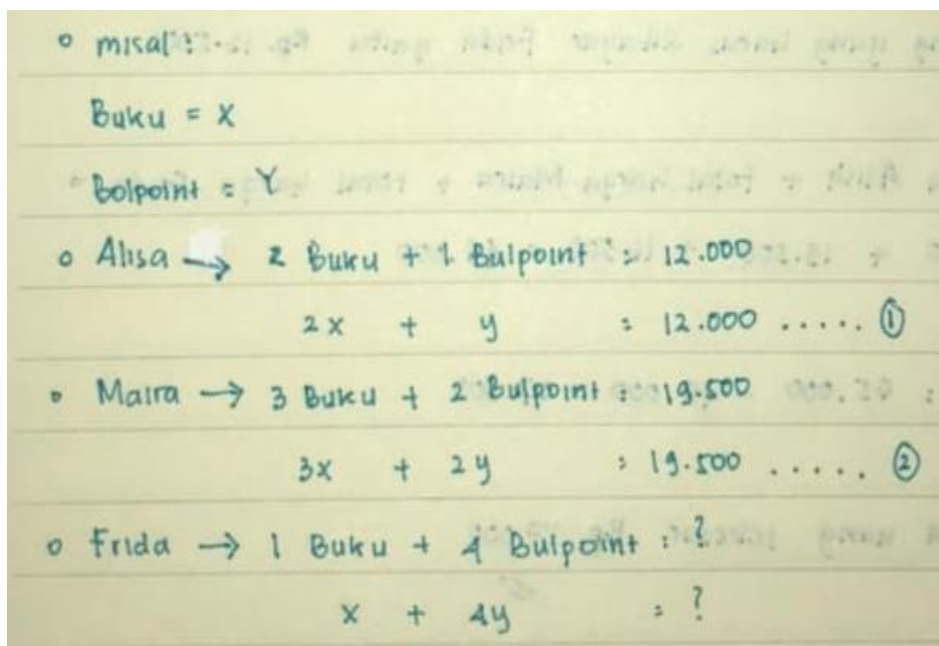 misal :
Buku = X
Bolpoint = Y
Alisa → 2 Buku + 1 Bulpoint = 12.000
2x + y = 12.000 ..... ①
Maira → 3 Buku + 2 Bulpoint = 19.500
3x + 2y = 19.500 ..... ②
Frida → 1 Buku + 4 Bulpoint = ?
x + 4y = ?